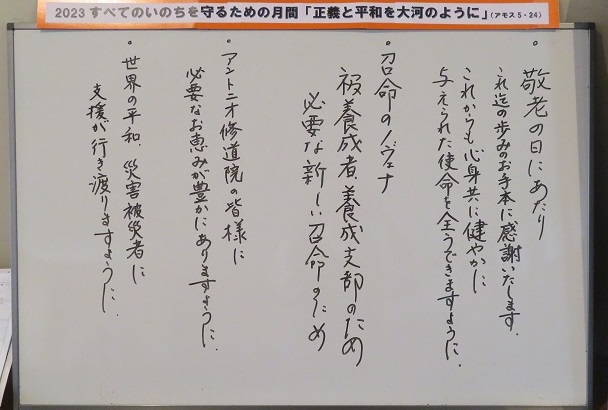 2023 すべてのいのちを守るための月間「正義と平和を大河のように」(アモス5・24)
・敬老の日にあたり
これ迄の歩みのお手本に感謝いたします.
これからも心身共に健やかに
与えられた使命を全うできますように.
・召命のノヴェナ
被養成者、養成支部のため
必要な新しい召命のため
・アントニオ修道院の皆様に
必要なお恵みが豊かにありますように.
・世界の平和、災害被災者に
支援が行き渡りますように.